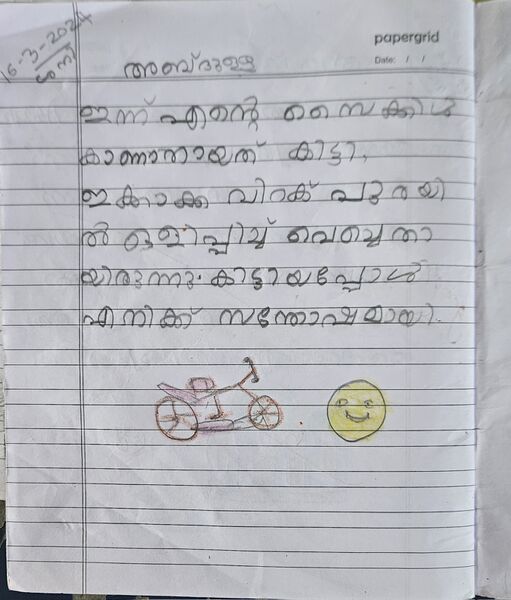 papergrid
Date: / /
16-3-2024
ശനി
അബ്ദുള്ള
ഇന്ന് എന്റെ സൈക്കിൾ
കാണാതായത് കിട്ടി.
ഇക്കാക്ക വിറക് പുരയി
ൽ ഒളിപ്പിച്ച് വെച്ചതാ
യിരുന്നു. കിട്ടിയപ്പോൾ
എനിക്ക് സന്തോഷമായി.